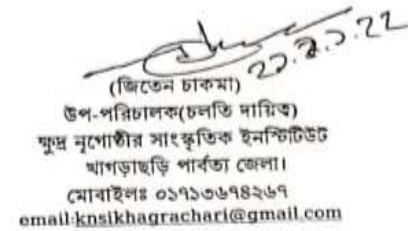 ২১.৯.২২
(জিতেন চাকমা)
উপ-পরিচালক(চলতি দায়িত্ব)
ক্ষুদ্র নৃগোষ্ঠীর সাংস্কৃতিক ইনস্টিটিউট
খাগড়াছড়ি পার্বত্য জেলা।
মোবাইলঃ ০১৭১৩৬৭৪২৬৭
email:knsikhagrachari@gmail.com